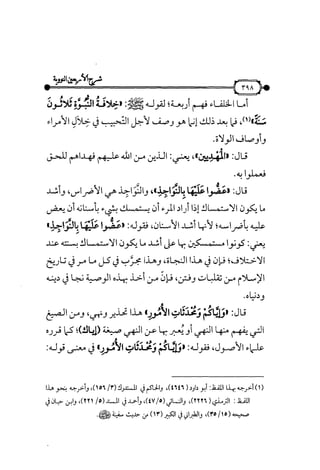 شرح الأربعين النووية
٣٩٨
أما الخلفاء فهم أربعة؛ لقوله ﷺ: «خِلافَةُ النُّبُوَّةِ ثَلاثُونَ
سَنَةً»(١)، فما بعد ذلك إنما هو وصف لأجل التحبيب في خلال الأمراء
وأوصاف الولاة.
قال: «المَهْدِيِّينَ»، يعني: الذين من الله عليهم فهداهم للحق
فعملوا به.
قال: «عَضُّوا عَلَيْهَا بِالنَّوَاجِذِ»، والنَّوَاجذ هي الأضراس، وأشد
ما يكون الاستمساك إذا أراد المرء أن يستمسك بشيء بأسنانه أن يعض
عليه بأضراسه؛ لأنها أشد الأسنان، فقوله: «عَضُّوا عَلَيْهَا بِالنَّوَاجِذِ»
يعني: كونوا مستمسكين بها على أشد ما يكون الاستمساك بسنته عند
الاختلاف؛ فإن في هذا النجاة، وهذا مجرب في كل ما مر في تاريخ
الإسلام من تقلبات وفتن، فإن من أخذ بهذه الوصية نجا في دينه
ودنياه.
قال: «وَإِيَّاكُمْ وَمُحْدَثَاتِ الأُمُورِ» هذا تحذير ونهي، ومن الصيغ
التي يفهم منها النهي أو يُعبر بها عن النهي صيغة (إياك)؛ كما قرره
علماء الأصول، فقوله: «وَإِيَّاكُمْ وَمُحْدَثَاتِ الأُمُورِ» في معنى قوله:
(١) أخرجه بهذا اللفظ: أبو داود (٤٦٤٦)، والحاكم في المستدرك (٣/ ١٥٦)، وأخرجه بنحو هذا
اللفظ: الترمذي (٢٢٢٦)، والنسائي (٥/ ٤٧)، وأحمد في المسند (٥/ ٢٢١)، وابن حبان في
صحيحه (١٥/ ٣٥)، والطبراني في الكبير (١٣) من حديث سفينة